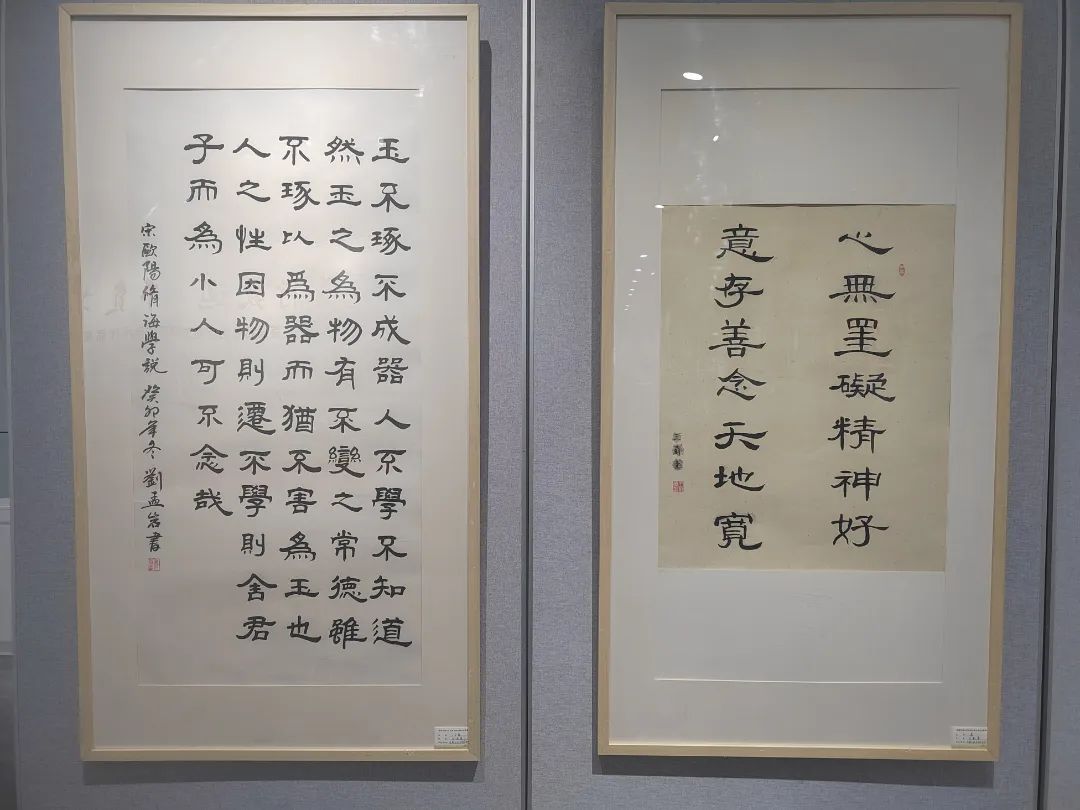 玉不琢不成器人不學不知道
然玉之為物有不變之常德雖
不琢以爲器而猶不害為玉也
人之性因物則遷不學則舍君
子而為小人可不念哉
宋歐陽脩誨學説 癸卯年冬 劉孟書
心無罣礙精神好
意存善念天地寬